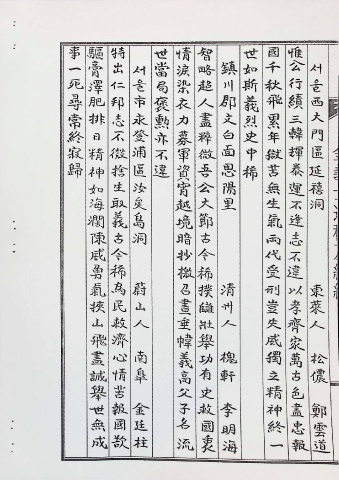 서울西大門區延禧洞 東萊人 松儂 鄭雲道
惟公行績三韓輝泰運不逢志不違以孝齊家萬古色盡忠報
國千秋飛累年獄苦無生氣兩代受刑豈失威獨立精神終一
世如斯義烈史中稀
鎮川郡文白面思陽里 清州人 槐軒 李明海
智略超人盡粹微吾公大節古今稀撲讎壯擧功有史救國衷
情淚染衣力募軍資宵越境暗抄檄召晝垂幃義高父子名流
世當局褒勲亦不違
서울市永登浦區汝矣島洞 蔚山人 南皐 金廷柱
特出仁邦志不微捨生取義古今稀為民救濟心情苦報國歎
驅膏澤肥排日精神如海濶陳威勇氣挾山飛盡誠擧世無成
事一死尋常終寂歸